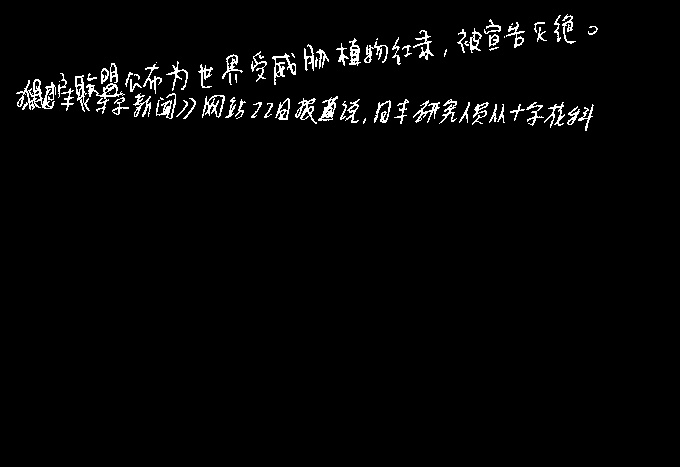 联盟公布为世界受威胁植物红录，被宣告灭绝。
京新闻》网站22日报道说，日本研究人员从十字花科